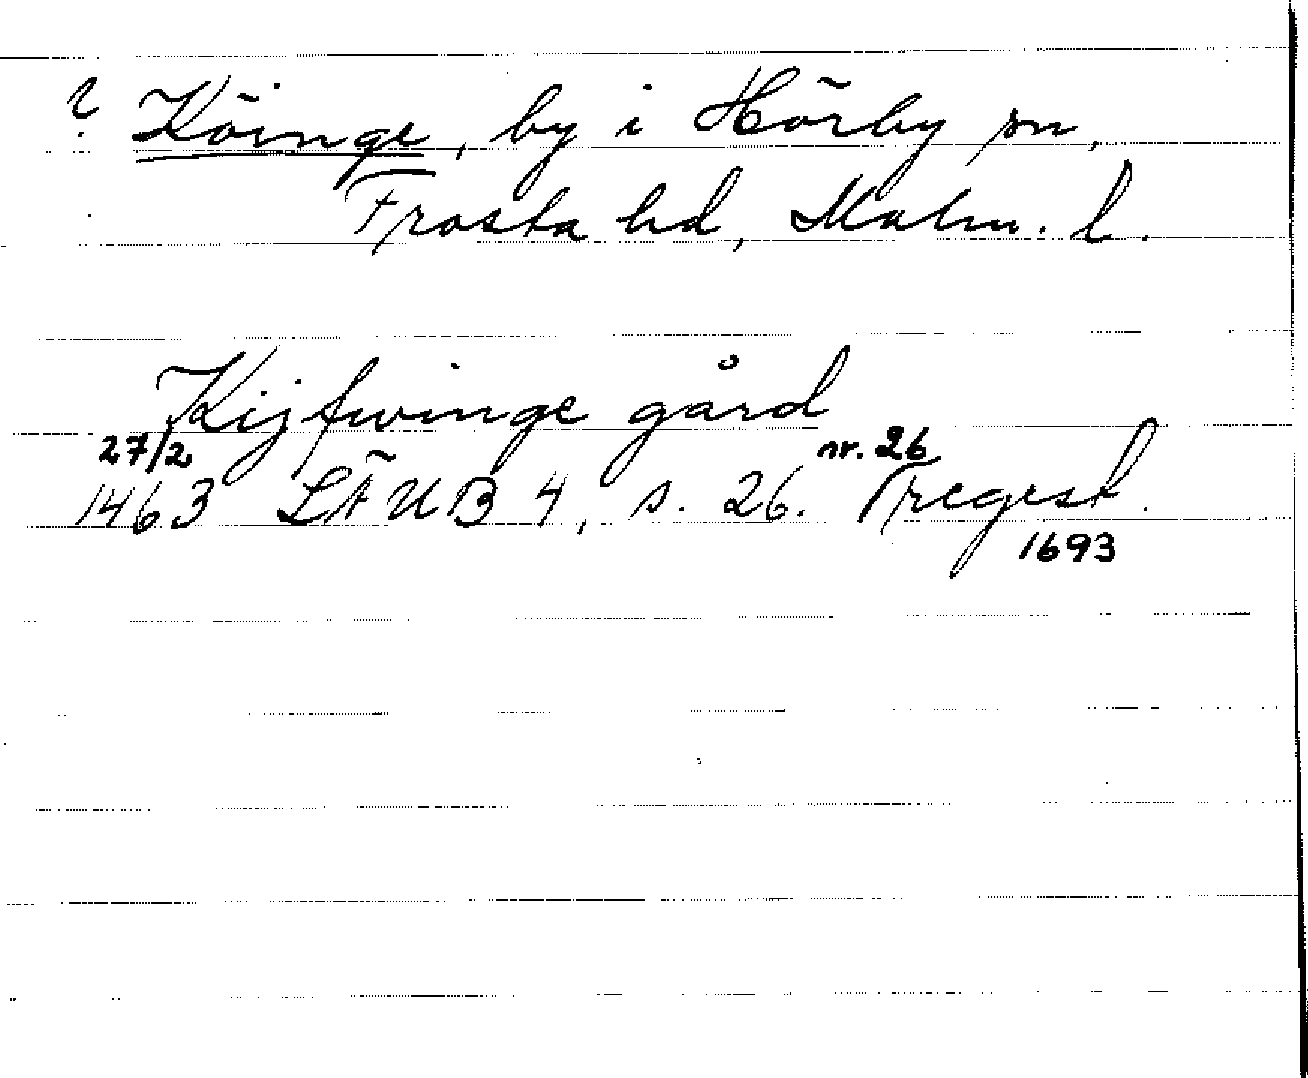 ? Köinge, by i Hörby sn,
Frosta hd, Malm. l.
Kijfwinge gård
27/2 nr. 26
1463 LÄUB 4, s. 26. regest.
1693